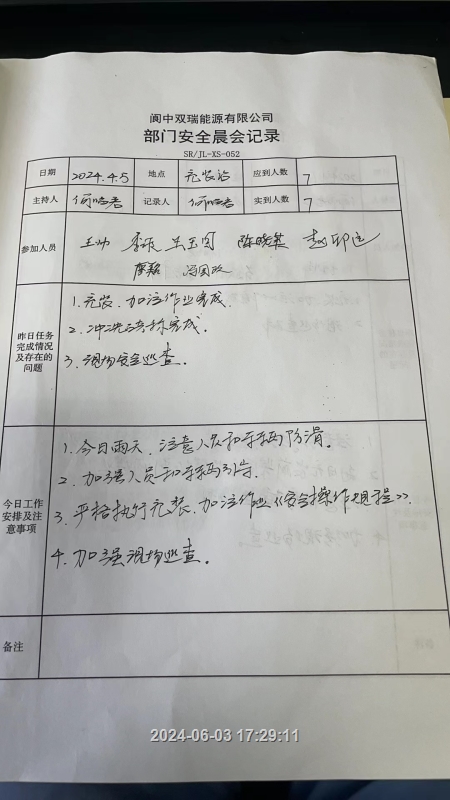 阆中双瑞能源有限公司
部门安全晨会记录
SR/JL-XS-052
日期 2024.4.5 地点 充装站 应到人数 7
主持人 记录人 实到人数 7
参加人员 王帅 陈晓英
昨日任务
完成情况
及存在的
问题
1. 充装、加注作业完成.
2. 完成.
3. 现场安全巡查。
今日工作
安排及注
意事项
1. 今日雨天、注意人员和车辆防滑。
2. 加强人员和车辆引导.
3. 严格执行充装、加注作业《安全操作规程》.
4. 加强现场巡查。
备注
2024-06-03 17:29:11